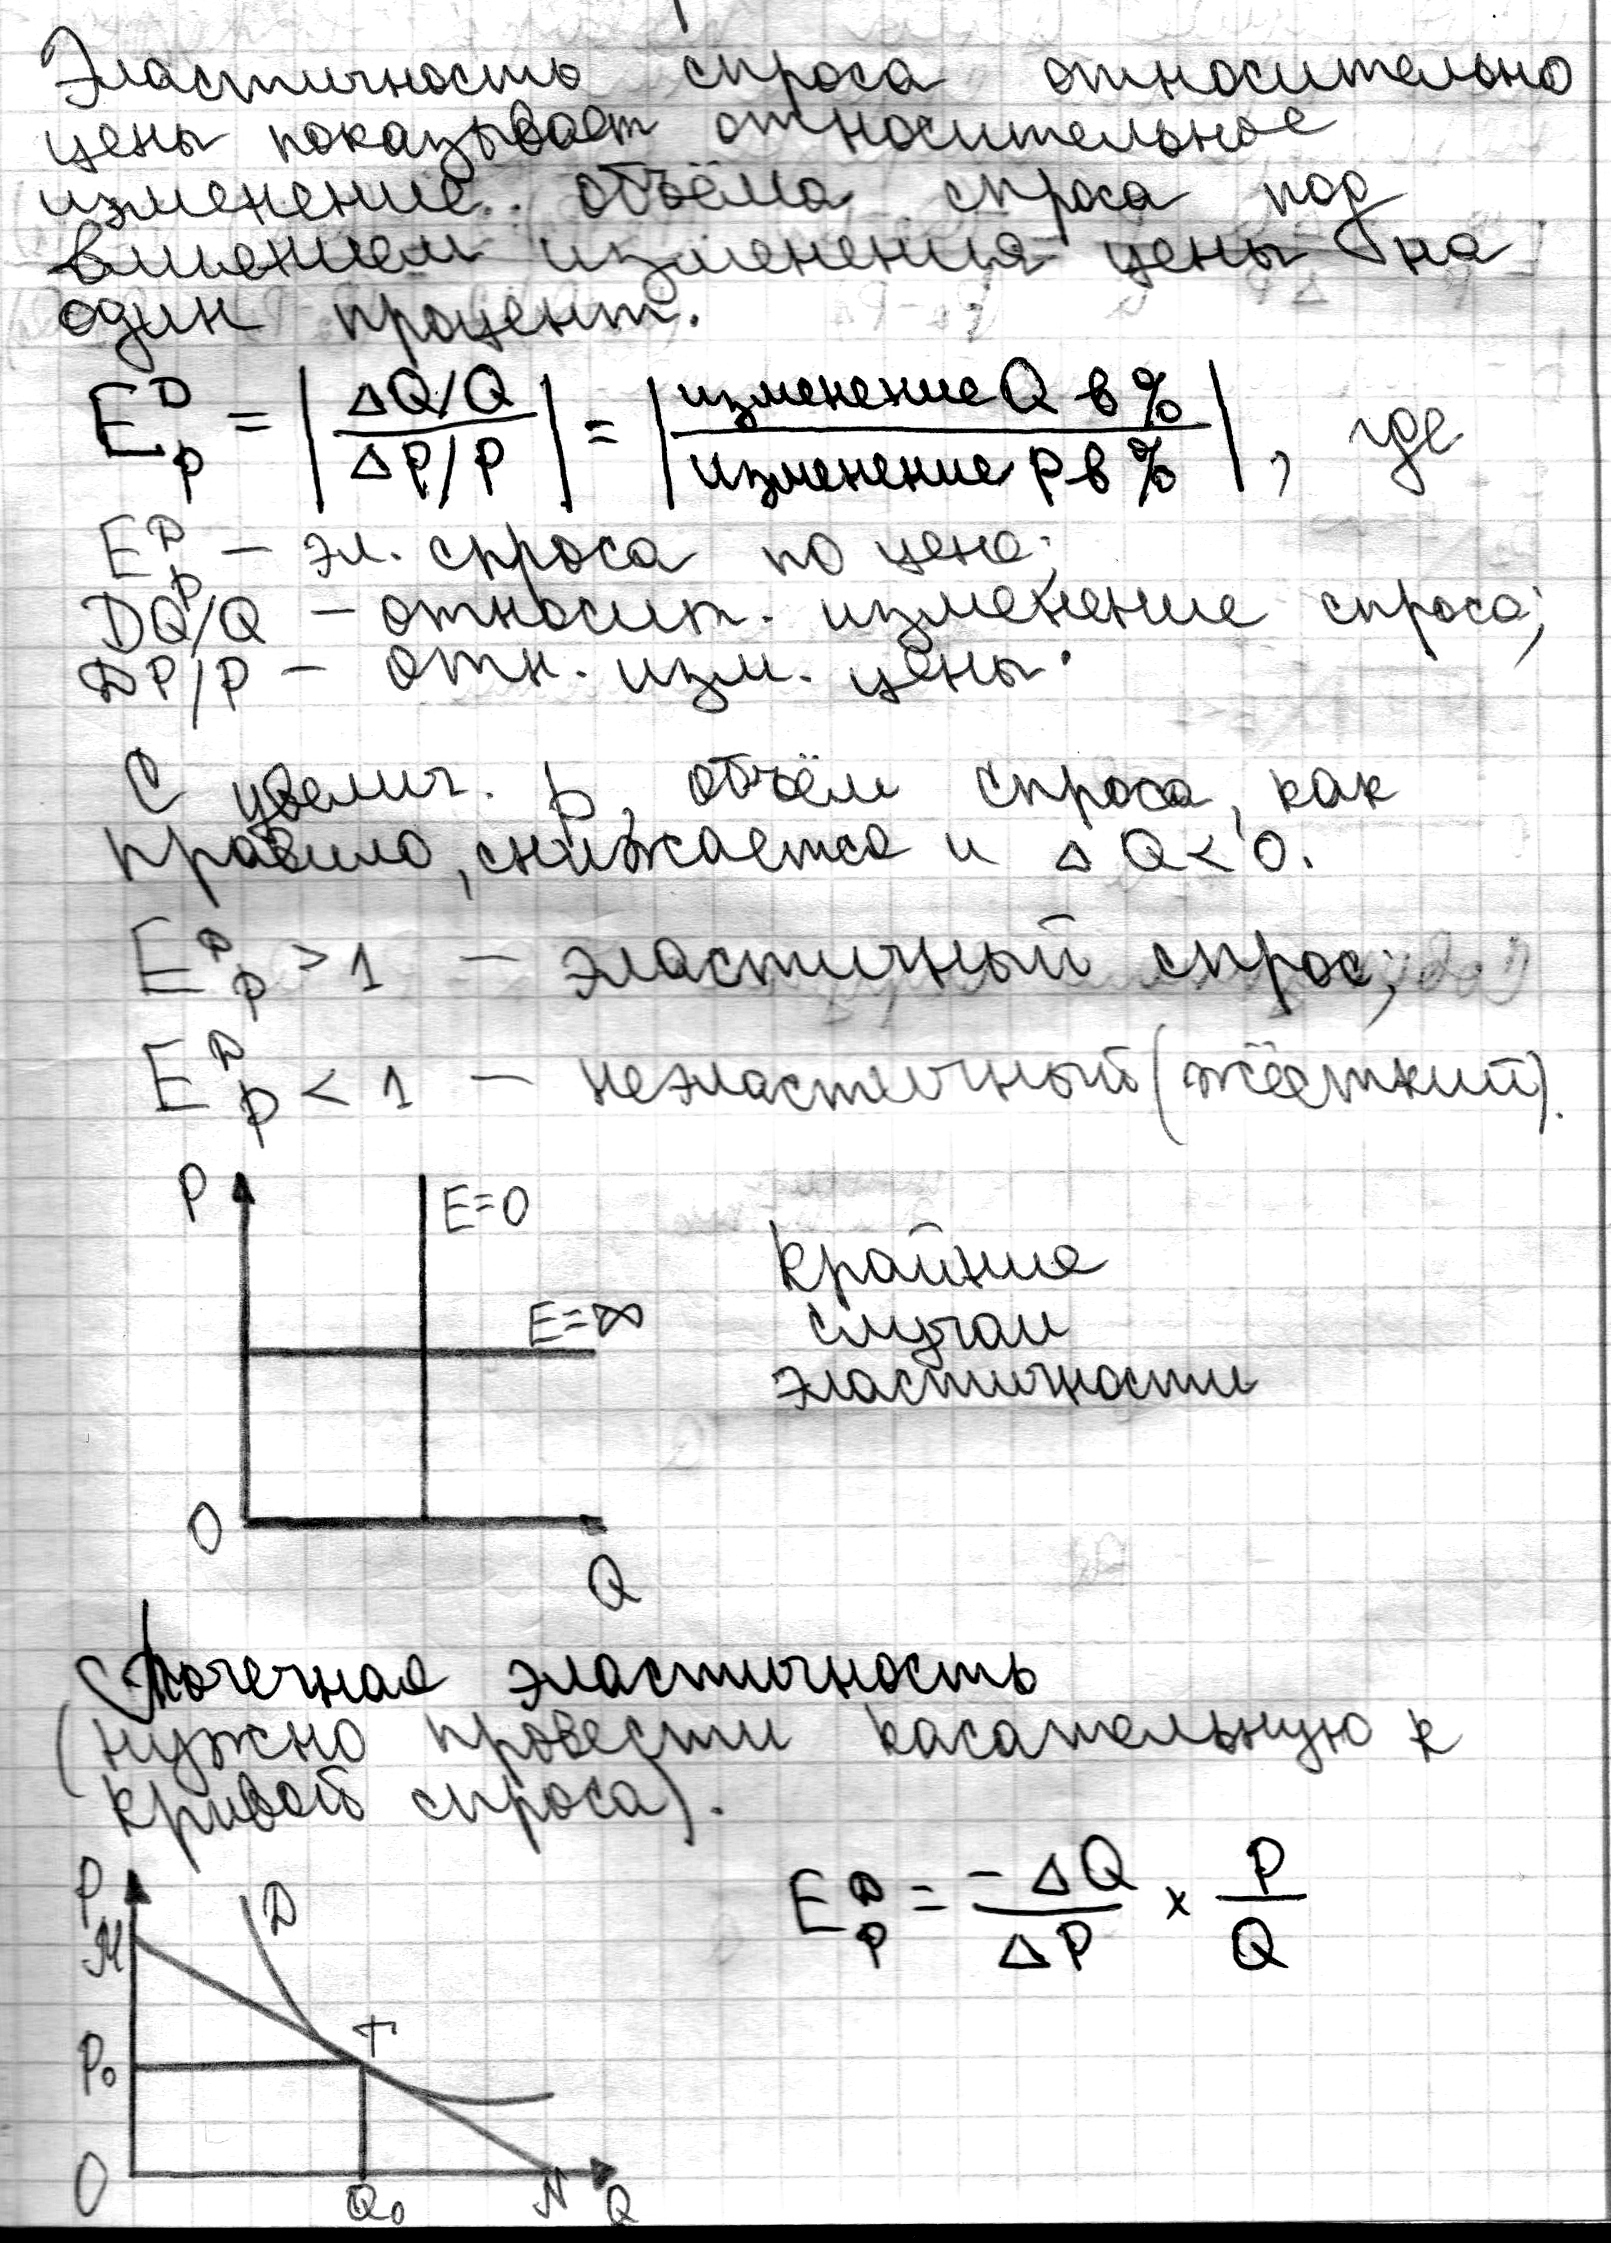 Эластичность спроса относительно
цены показывает относительное
изменение объёма спроса под
влиянием изменения цены на
один процент.
E^D_P = |ΔQ/Q / ΔP/P| = |изменение Q в % / изменение P в %|, где
E^D_P — эл. спроса по цене;
DQ/Q — относит. изменение спроса;
DP/P — отн. изм. цены.
С увелич. P, объём спроса, как
правило, снижается и ΔQ<0.
E^D_P > 1 — эластичный спрос;
E^D_P < 1 — неэластичный (жёсткий).
P
E=0
E=∞
Крайние
случаи
эластичности
O
Q
Точечная эластичность
(нужно провести касательную к
кривой спроса).
E^D_P = -ΔQ / ΔP × P / Q
P
D
M
T
P₀
O
Q₀
N
Q